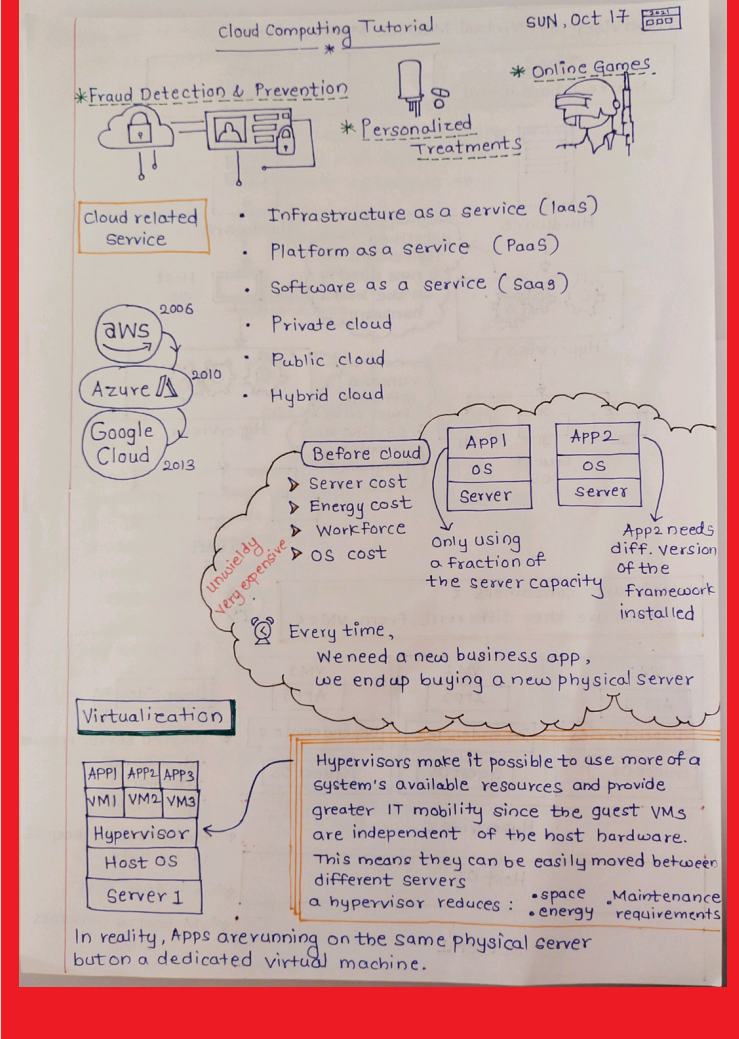 Cloud Computing Tutorial
SUN, Oct 17
2021
* Fraud Detection & Prevention
* Personalized
Treatments
* Online Games
Cloud related
service
• Infrastructure as a service (IaaS)
• Platform as a service (PaaS)
• Software as a service (SaaS)
• Private cloud
• Public cloud
• Hybrid cloud
aws 2006
Azure 2010
Google
Cloud 2013
Before cloud
➤ Server cost
➤ Energy cost
➤ Workforce
➤ OS cost
Unwieldy
very expensive
APP1
OS
Server
APP2
OS
server
Only using
a fraction of
the server capacity
App2 needs
diff. version
of the
framework
installed
Every time,
We need a new business app,
we end up buying a new physical server
Virtualization
APP1 APP2 APP3
VM1 VM2 VM3
Hypervisor
Host OS
Server 1
Hypervisors make it possible to use more of a
system's available resources and provide
greater IT mobility since the guest VMs
are independent of the host hardware.
This means they can be easily moved between
different servers
a hypervisor reduces : • space • Maintenance
• energy requirements
In reality, Apps are running on the same physical server
but on a dedicated virtual machine.